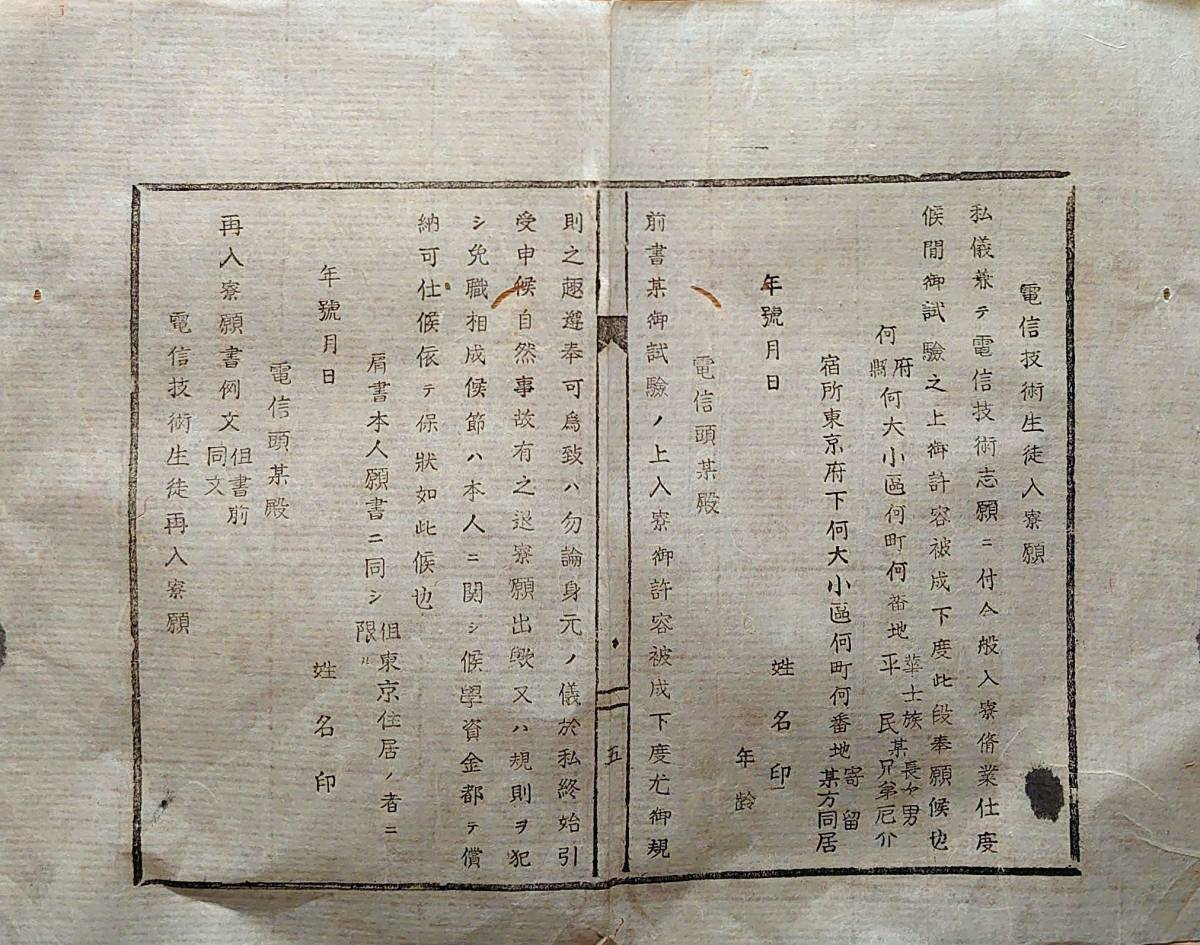 電信技術生徒入寮願
私儀兼テ電信技術志願ニ付今般入寮脩業仕度
候間御試驗之上御許容被成下度此段奉願候也
何府縣何大小區何町何番地華士族平民某長次男兄弟厄介
宿所東京府下何大小區何町何番地寄留某方同居
姓名印
年齡
年號月日
電信頭某殿
前書某御試驗ノ上入寮御許容被成下度尤御規
五
則之趣遵奉可爲致ハ勿論身元ノ儀於私終始引
受申候自然事故有之退寮願出歟又ハ規則ヲ犯
シ免職相成候節ハ本人ニ関シ候學資金都テ償
納可仕候依テ保狀如此候也
肩書本人願書ニ同シ但東京住居ノ者ニ限ル
姓名印
年號月日
電信頭某殿
再入寮願書例文但書前同文
電信技術生徒再入寮願